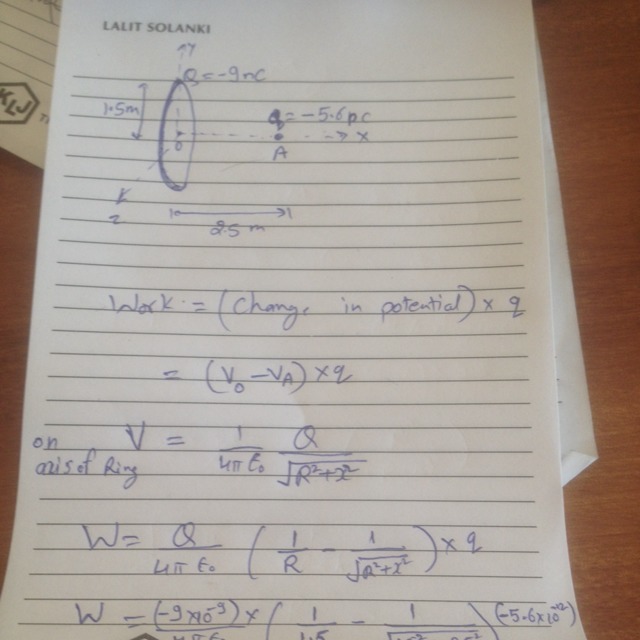 LALIT SOLANKI
Y
Q = -9nC
KLJ
1.5m
q = -5.6pc
O
x
A
z
2.5 m
Work = (Change in potential) × q
= (V₀ - V_A) × q
on
axis of Ring
V = 1/4πε₀ Q/√R²+x²
W = Q/4πε₀ (1/R - 1/√R²+x²) × q
W = (-9×10⁻⁹) × ( 1/1.5 - 1 (-5.6×10⁻¹²)